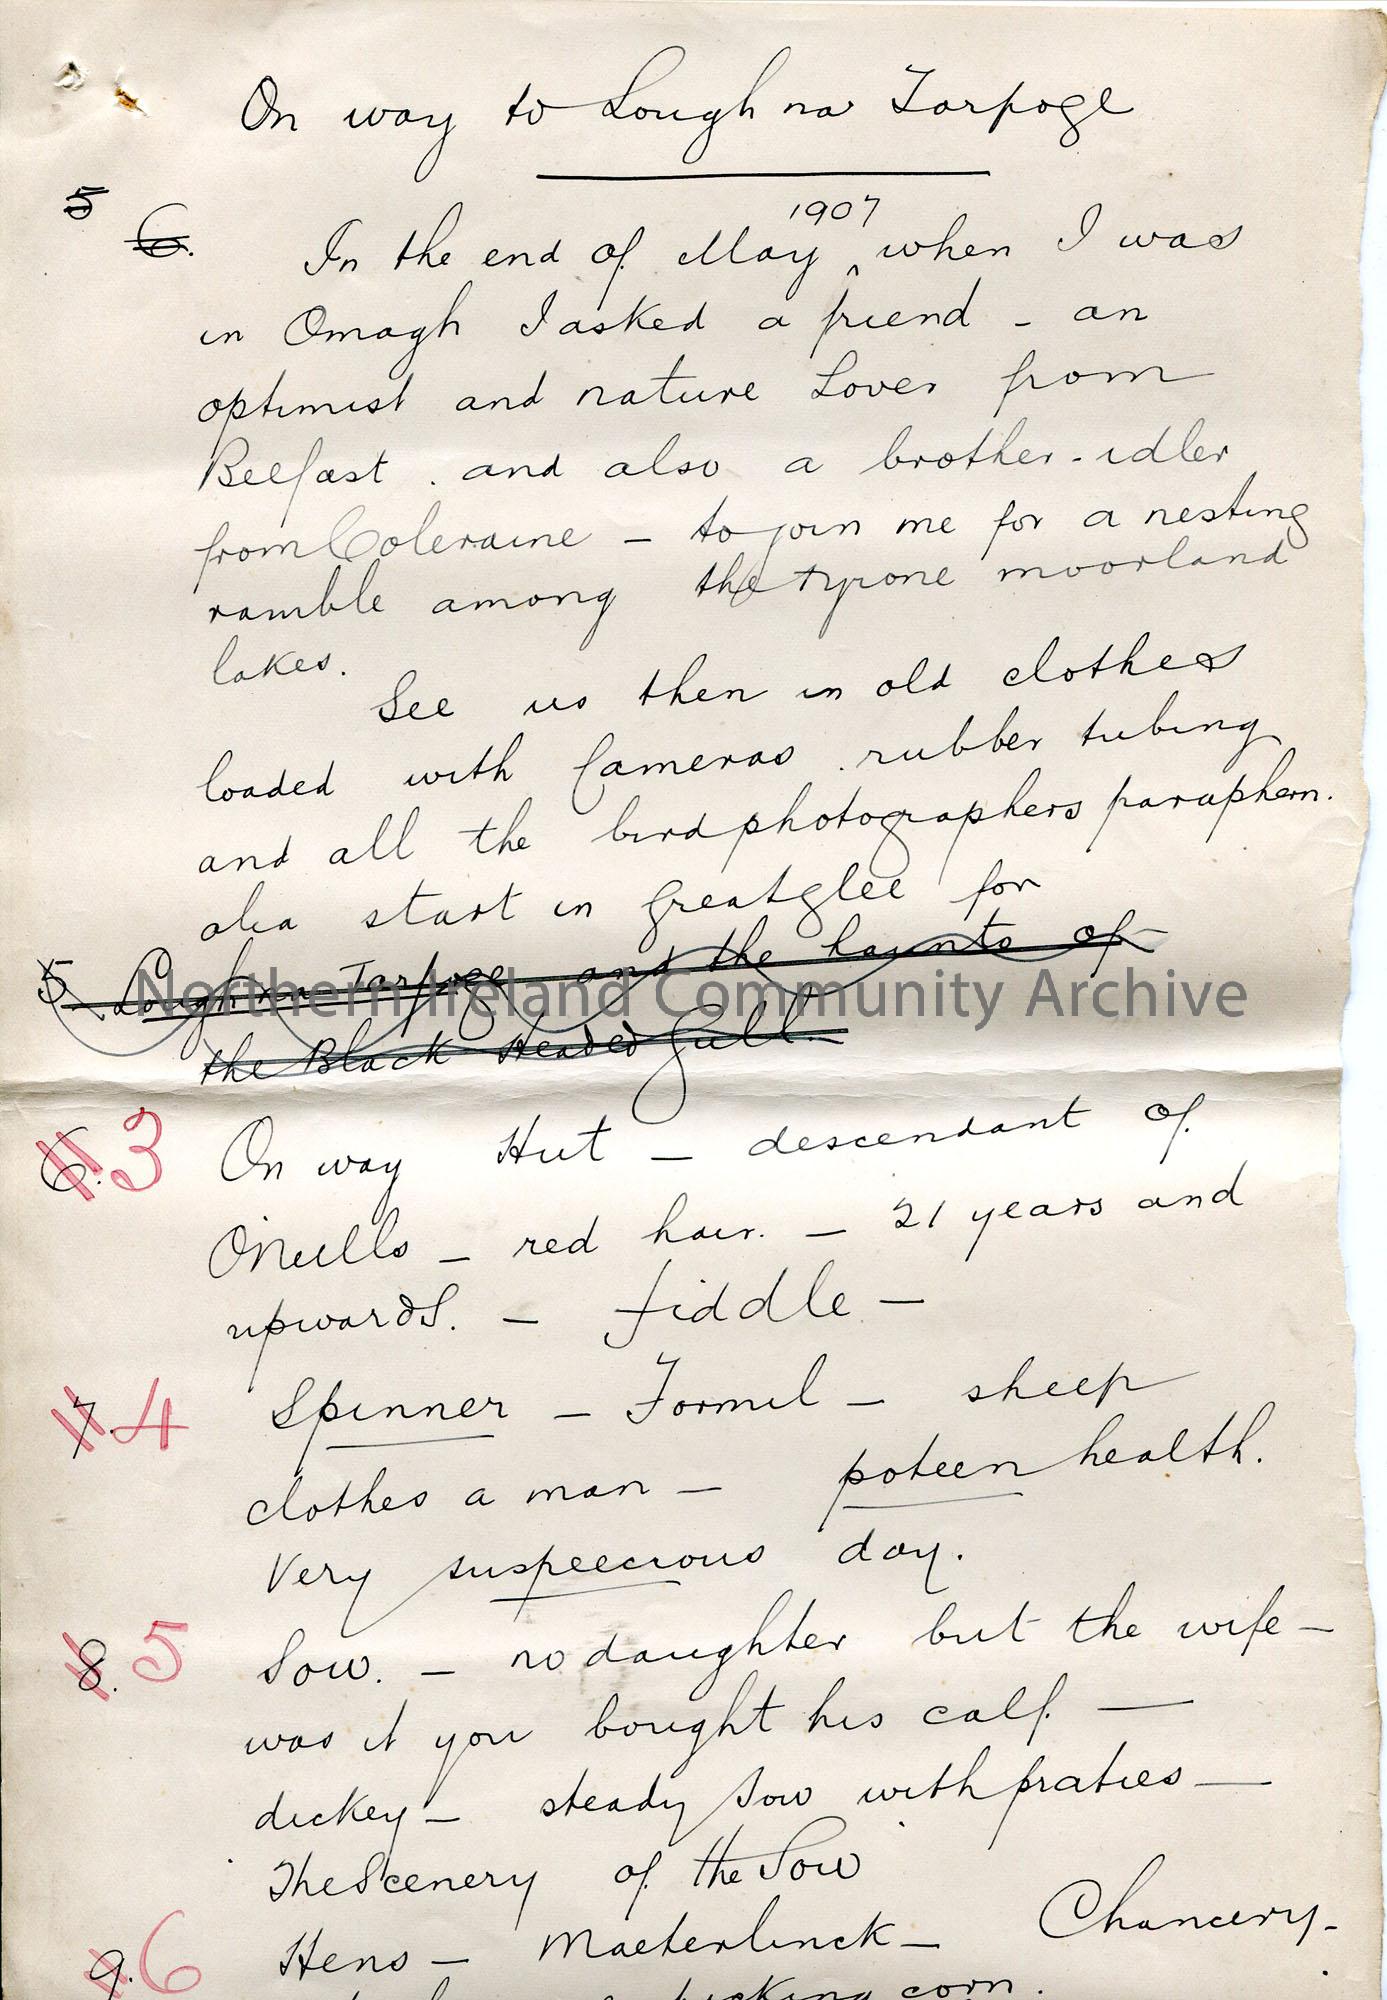 On way to Lough na Tarpoge
5
6. In the end of May 1907 when I was
in Omagh I asked a friend - an
optimist and nature Lover from
Belfast. and also a brother-idler
from Coleraine - to join me for a nesting
ramble among the tyrone moorland
lakes.
See us then in old clothes
loaded with Cameras. rubber tubing
and all the bird photographers paraphern.
alia start in great glee for
5 Lough na Tarpoge and the haunts of
the Black Headed Gull.
Northern Ireland Community Archive
6. 3 On way Hut - descendant of
O'Neills - red hair. - 21 years and
upwards. - fiddle -
7. 4 Spinner - Formil - sheep
clothes a man - poteen health.
Very suspeecious day.
8. 5 Sow. - no daughter but the wife -
was it you bought his calf. -
dickey - steady sow with praties -
The Scenery of the Sow
9. 6 Hens - Maeterlinck - Chancery -
picking corn.